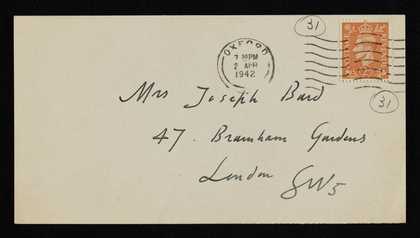 31
OXFORD
2 APR
1942
Mrs Joseph Bard
47. Bramham Gardens
London SW5
31